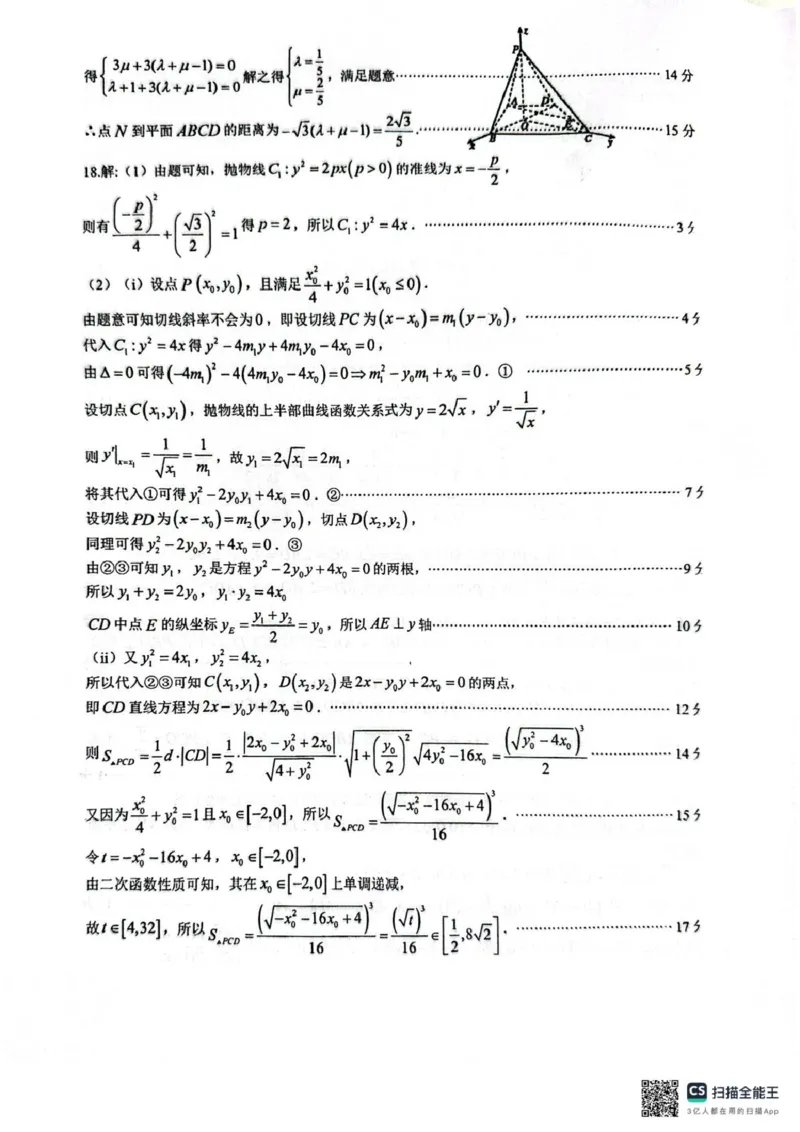 得{3μ+3(λ+μ-1)=0 λ+1+3(λ+μ-1)=0 解之得{λ=1/5 μ=2/5,满足题意 14分
∴点N到平面ABCD的距离为-√3(λ+μ-1)=2√3/5. 15分
P z A D B O E C x y
18.解:(1)由题可知,抛物线C₁:y²=2px(p>0)的准线为x=-p/2,
则有(-p/2)²/4+(√3/2)²=1得p=2,所以C₁:y²=4x. 3分
(2)(i)设点P(x₀,y₀),且满足x₀²/4+y₀²=1(x₀≤0).
由题意可知切线斜率不会为0,即设切线PC为(x-x₀)=m₁(y-y₀), 4分
代入C₁:y²=4x得y²-4m₁y+4m₁y₀-4x₀=0,
由Δ=0可得(-4m₁)²-4(4m₁y₀-4x₀)=0⇒m₁²-y₀m₁+x₀=0.① 5分
设切点C(x₁,y₁),抛物线的上半部曲线函数关系式为y=2√x,y′=1/√x,
则y′|ₓ₌ₓ₁=1/√x₁=1/m₁,故y₁=2√x₁=2m₁,
将其代入①可得y₁²-2y₀y₁+4x₀=0.② 7分
设切线PD为(x-x₀)=m₂(y-y₀),切点D(x₂,y₂),
同理可得y₂²-2y₀y₂+4x₀=0.③
由②③可知y₁,y₂是方程y²-2y₀y+4x₀=0的两根, 9分
所以y₁+y₂=2y₀,y₁·y₂=4x₀
CD中点E的纵坐标y_E=(y₁+y₂)/2=y₀,所以AE⊥y轴 10分
(ii)又y₁²=4x₁,y₂²=4x₂,
所以代入②③可知C(x₁,y₁),D(x₂,y₂)是2x-y₀y+2x₀=0的两点,
即CD直线方程为2x-y₀y+2x₀=0. 12分
则S▲PCD=1/2 d·|CD|=1/2·|2x₀-y₀²+2x₀|/√(4+y₀²)·√(1+(y₀/2)²)√(4y₀²-16x₀)=(√(y₀²-4x₀))³/2 14分
又因为x₀²/4+y₀²=1且x₀∈[-2,0],所以S▲PCD=(√(-x₀²-16x₀+4))³/16. 15分
令t=-x₀²-16x₀+4,x₀∈[-2,0],
由二次函数性质可知,其在x₀∈[-2,0]上单调递减,
故t∈[4,32],所以S▲PCD=(√(-x₀²-16x₀+4))³/16=(√t)³/16∈[1/2,8√2]. 17分
CS 扫描全能王
3亿人都在用的扫描App